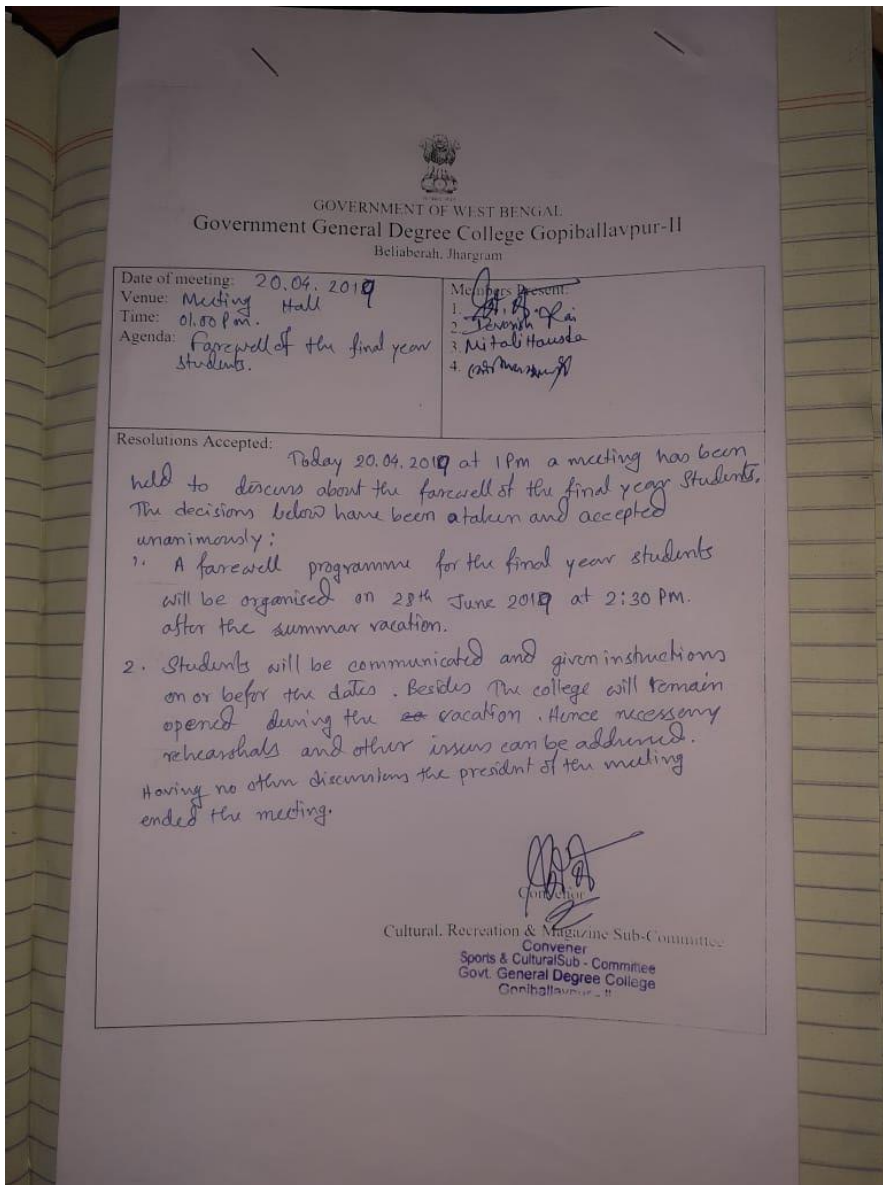 GOVERNMENT OF WEST BENGAL
Government General Degree College Gopiballavpur-II
Beliaberah, Jhargram
Date of meeting: 20.04.2019
Venue: Meeting Hall
Time: 01.00 Pm.
Agenda: Farewell of the final year
students.
Members Present:
1.
2. Devarsh Rai
3. Mitali Hausda
4.
Resolutions Accepted:
Today 20.04.2019 at 1Pm a meeting has been
held to discuss about the farewell of the final year Students.
The decisions below have been ataken and accepted
unanimously:
1. A farewell programme for the final year students
will be organised on 28th June 2019 at 2:30 PM.
after the summar vacation.
2. Students will be communicated and given instructions
on or befor the dates. Besides The college will remain
opened during the vacation. Hence necessary
rehearshals and other issues can be addressed.
Having no other discussions the president of the meeting
ended the meeting.
Convenor
Cultural, Recreation & Magazine Sub-Committee
Convener
Sports & CulturalSub - Committee
Govt. General Degree College
Gopiballavpur - II